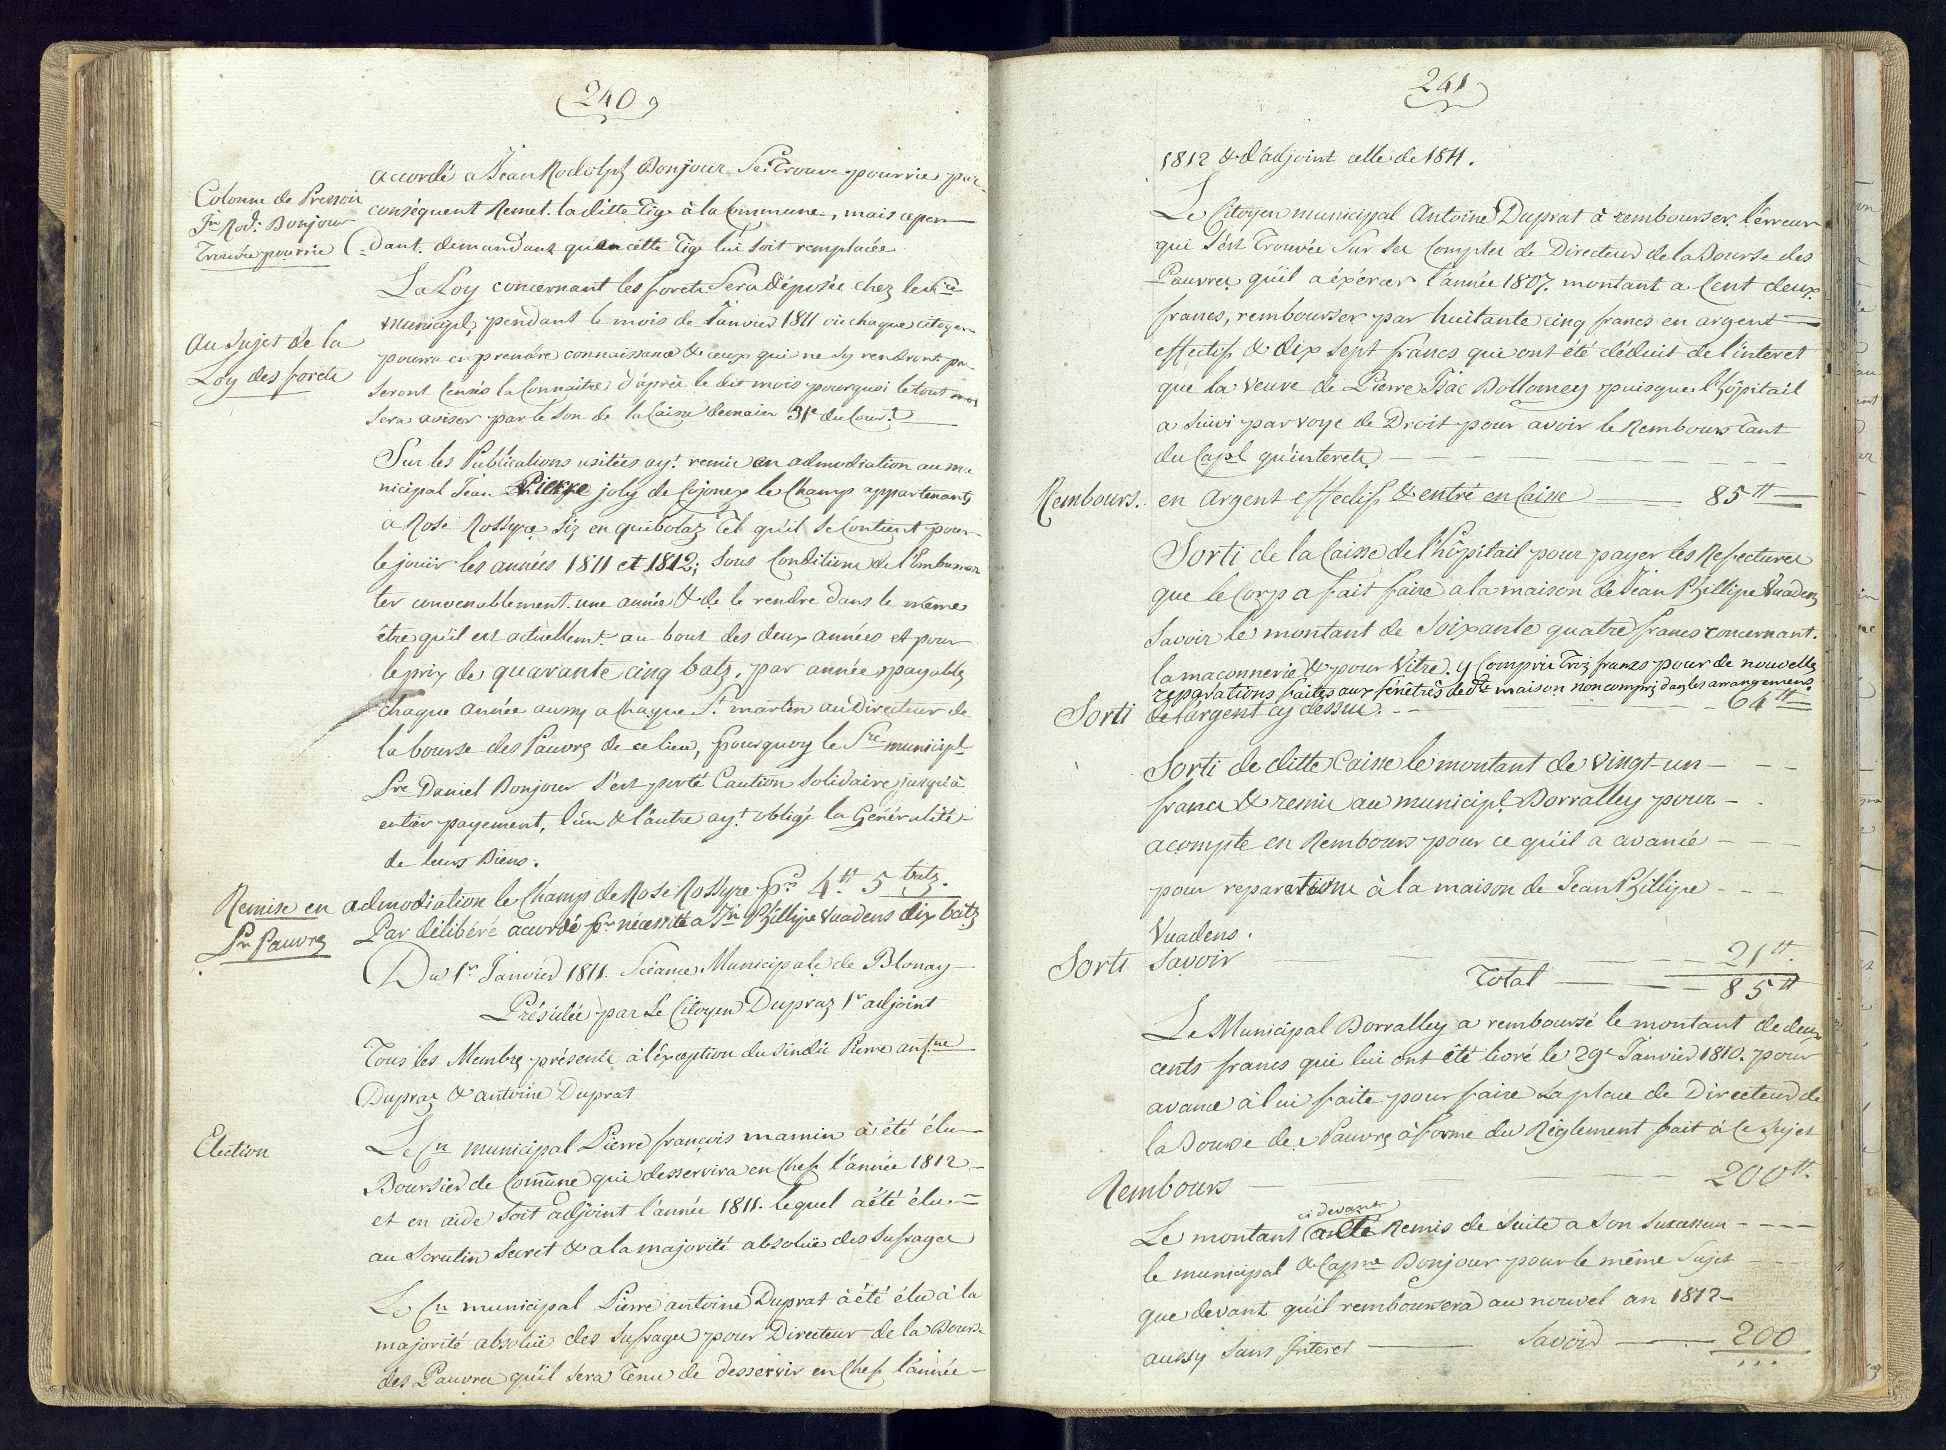 240
accordé a Jean Rodolph Bonjour Se trouve pourrie par
Colonne de Pressoir
Jn Rod: Bonjour
Trouvée pourrie
conséquent Remet. la ditte Tige à la Commune, mais cepen
dant. demandant qu'en cette Tige lui soit remplacée
La Loy concernant les forets Sera déposée chez le Sre
Au Sujet de la
Loy des forets
municipl, pendant le mois de Janvier 1811 où chaque citoyen
pourra en prendre connaissance & ceux qui ne Sy rendront pas
seront censés la Connaitre d'après le dit mois pourquoi le tout
Sera aviser par le Son de la Caisse demain 31e du Cour.t
Sur les Publications usitées ay.t remis en admodiation au mu
nicipal Jean Pierre joly de Cojonex le Champ appartenant
a Rose Rossyre Siz en quibolaz Tel qu'il se Contient pour
le jouir les années 1811 et 1812; sous Conditions de l'Embumen
ter convenablement une année & de le rendre dans le même
être qu'il est actuellemt. au bout des deux années et pour
le prix de quarante cinq batz, par année payable
chaque année aussy a chaque St. martin au Directeur de
la bourse des Pauvres de ce lieu, pourquoy le Sre municipl
Sre Daniel Bonjour s'est porté Caution Solidaire jusqu'à
entier payement, l'un & l'autre ay.t obligé la Généralité
de leurs Biens.
Remise en admodiation le Champ de Rose Rossyre pr 4 ₶ 5 batz.
Pr Pauvres Par délibéré accordé pr nécessité a Jn Phillipe Vuadens dix batz
Du 1r Janvier 1811. Séance Municipale de Blonay
Présidée par Le Citoyen Dupraz 1r adjoint
Tous les Membres présents à l'exception du sindic Pierre antne
Dupraz & antoine Duprat
Election
Le Cn municipal Pierre françois mamin à été élu
Boursier de Commune qui desservira en Chef l'année 1812
et en aide soit adjoint l'année 1811. lequel a été élu
au Scrutin Secret & a la majorité absolüe des Suffrages
Le Cn municipal Pierre antoine Duprat à été élu à la
majorité absolüe des Suffrages pour Directeur de la Bourse
des Pauvres qu'il sera Tenu de desservir en Chef l'année
241
1812 & d'adjoint celle de 1811.
Le Citoyen municipal Antoine Duprat à rembourser l'érreur
qui s'est Trouvée Sur Ses Comptes de Directeur de la Bourse des
Pauvres qu'il a éxércer l'année 1807 montant a Cent deux
francs, rembourser par huitante cinq francs en argent
effectif & dix sept francs qui ont été déduit de l'interet
que la veuve de Pierre Isac Dollomey puisque l'hôpitail
a suivi par voye de Droit pour avoir le Rembours Tant
du Capl qu'interets.
Rembours. en Argent effectif & entré en Caisse 85 ₶
Sorti de la Caisse de l'hôpitail pour payer les Refectures
que le Corp a fait faire a la maison de Jean Phillipe Vuadens
Savoir le montant de Soixante quatre francs concernant.
la maconnerie & pour Vitre. y Compris Troiz francs pour de nouvelles
réparations faites aux fénêtres de dte maison non compris dans les arrangements
Sorti de l'argent cy dessus. 64 ₶
Sorti de ditte Caisse le montant de vingt-un
francs & remis au municipl Borralley pour
acompte en Rembours pour ce qu'il a avancé
pour reparations à la maison de Jean Phillipe
Vuadens.
Sorti Savoir 21 ₶
Total 85 ₶
Le Municipal Borralley a remboursé le montant de deux
cents francs qui lui ont été livré le 29e Janvier 1810. pour
avance à lui faite pour faire la place de Directeur de
la Bourse des Pauvres à forme du Réglement fait à ce Sujet
Rembours 200 ₶
ci devant
Le montant a été Remis de Suite a Son Successeur
le municipal & Capne Bonjour pour le même Sujet
que devant qu'il remboursera au nouvel an 1812
aussy Sans Interet Savoir 200